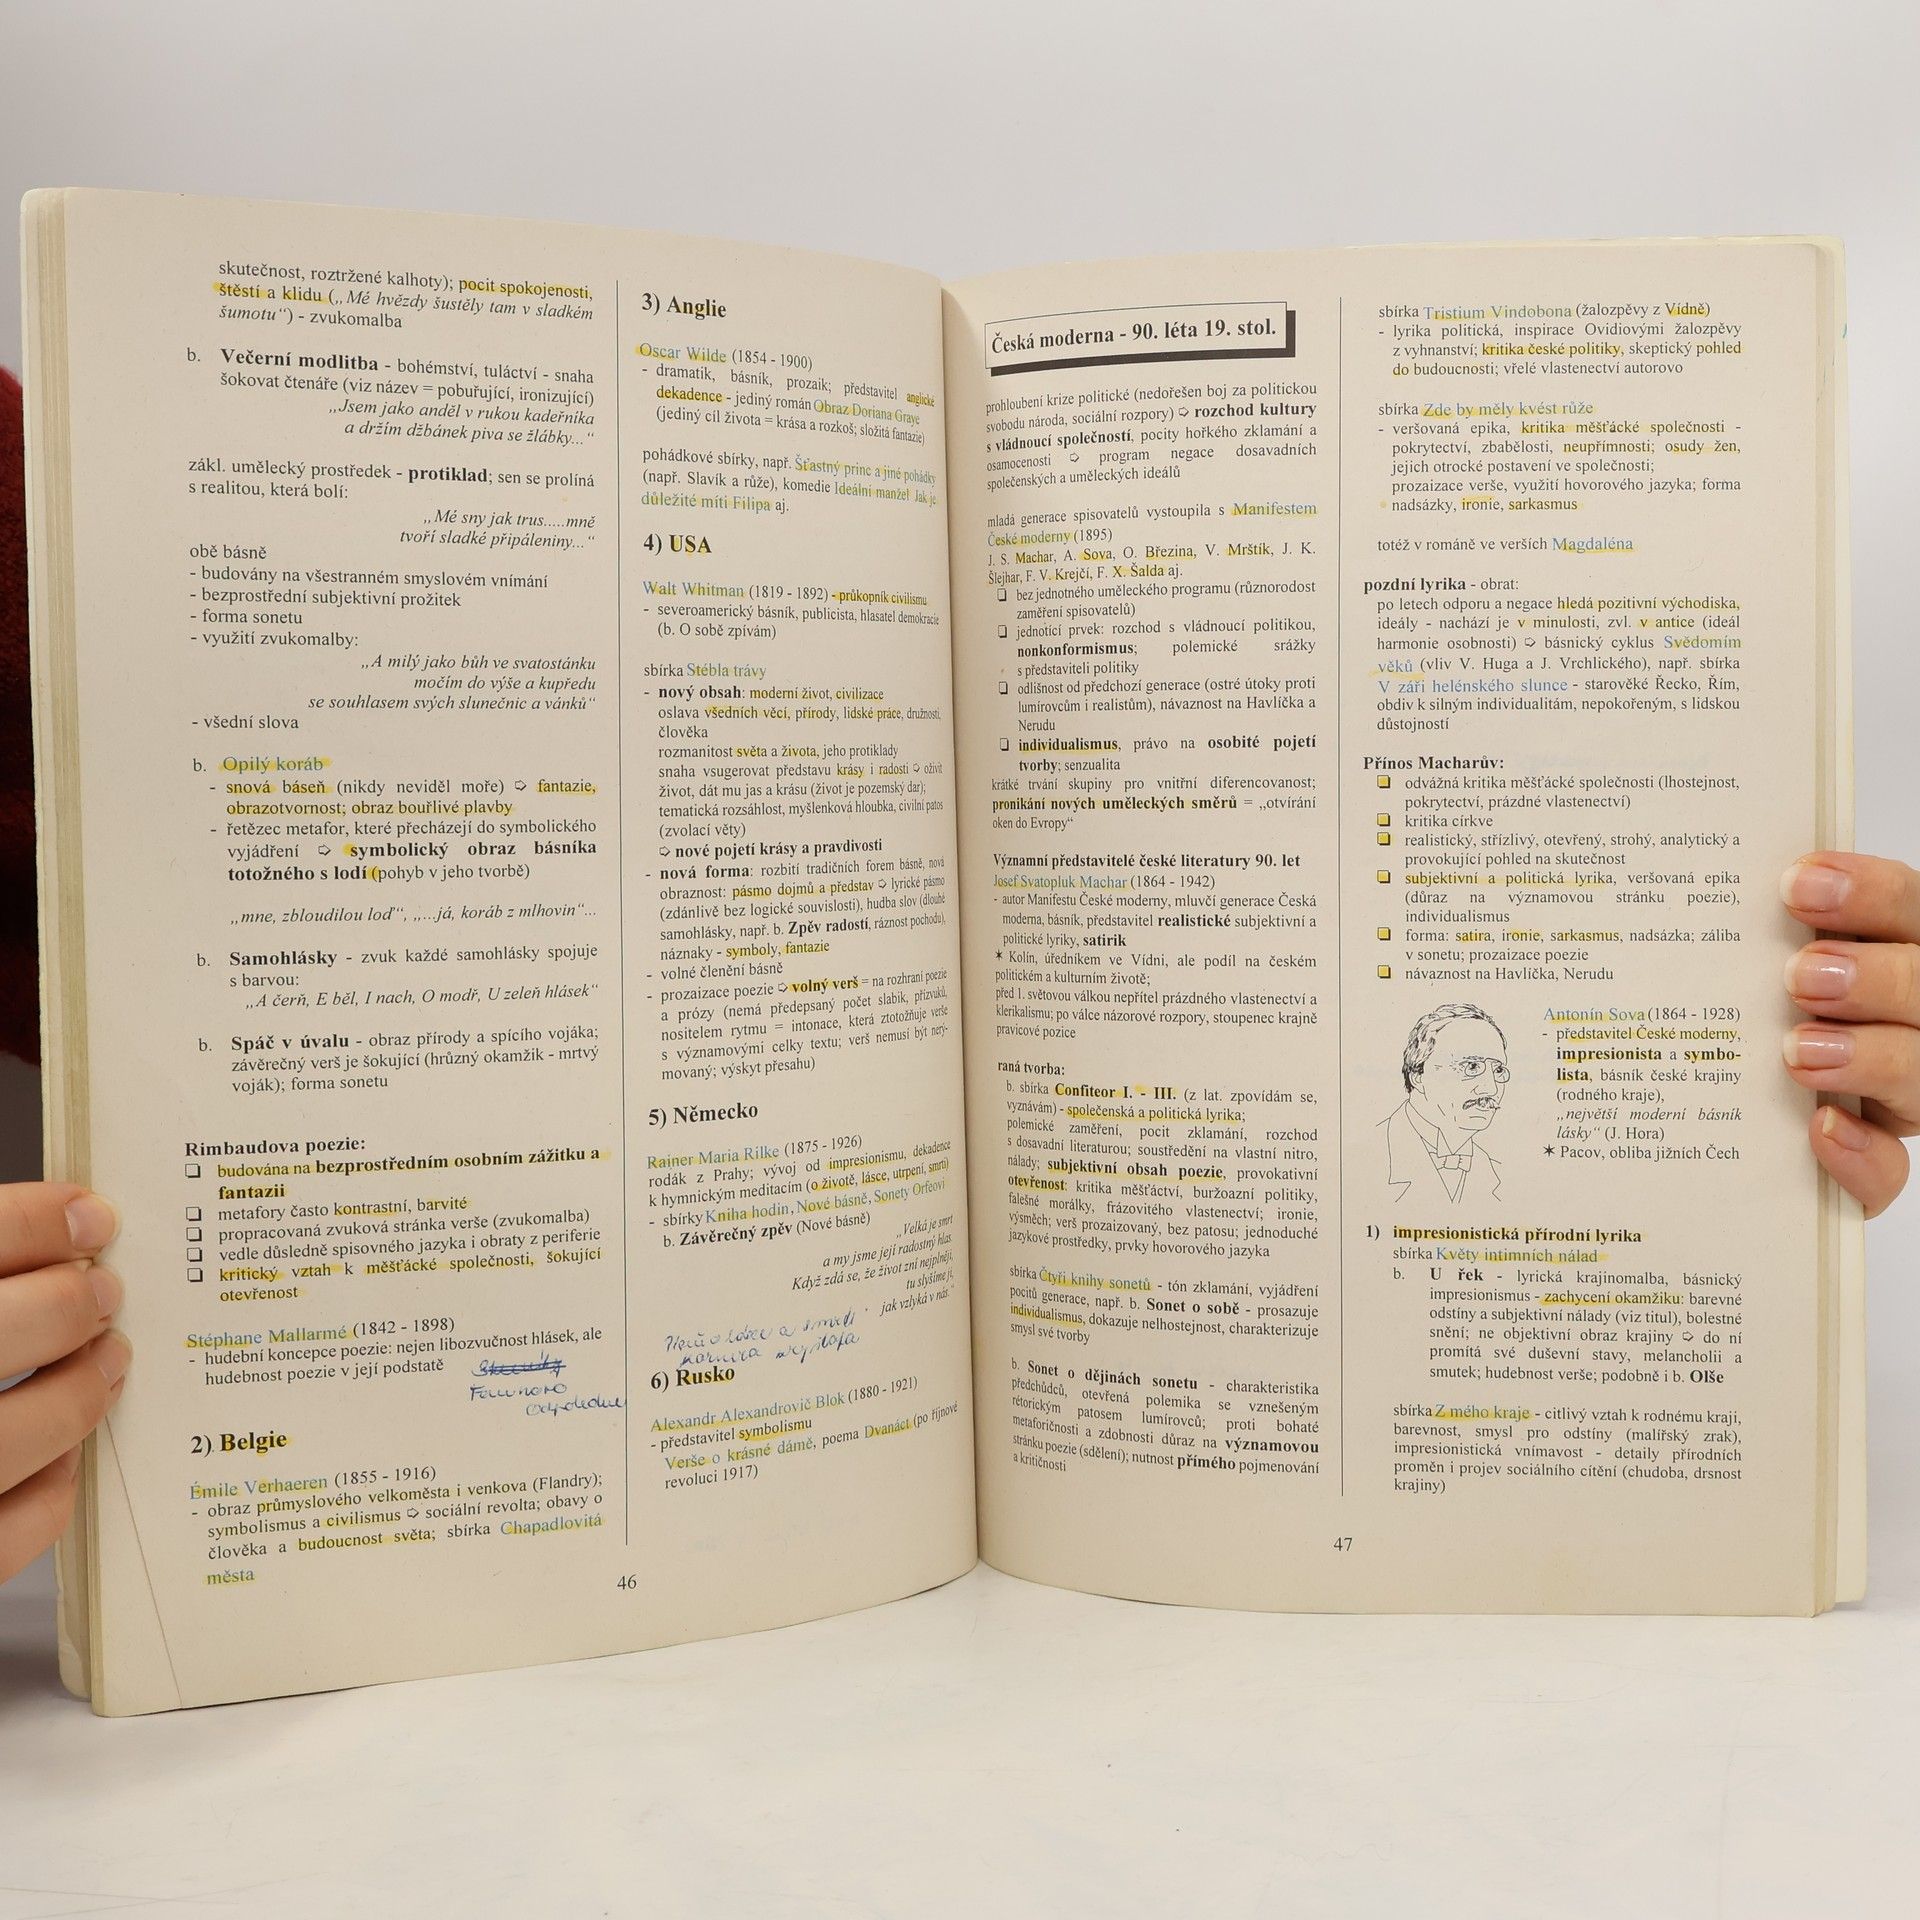 skutečnost, roztržené kalhoty); pocit spokojenosti,
štěstí a klidu („Mé hvězdy šustěly tam v sladkém
šumotu“) - zvukomalba
b. Večerní modlitba - bohémství, tuláctví - snaha
šokovat čtenáře (viz název = pobuřující, ironizující)
„Jsem jako anděl v rukou kadeřníka
a držím džbánek piva se žlábky...“
zákl. umělecký prostředek - protiklad; sen se prolíná
s realitou, která bolí:
„Mé sny jak trus.....mně
tvoří sladké připáleniny...“
obě básně
- budovány na všestranném smyslovém vnímání
- bezprostřední subjektivní prožitek
- forma sonetu
- využití zvukomalby:
„A milý jako bůh ve svatostánku
močím do výše a kupředu
se souhlasem svých slunečnic a vánků“
- všední slova
b. Opilý koráb
- snová báseň (nikdy neviděl moře) ➪ fantazie,
obrazotvornost; obraz bouřlivé plavby
- řetězec metafor, které přecházejí do symbolického
vyjádření ➪ symbolický obraz básníka
totožného s lodí (pohyb v jeho tvorbě)
„mne, zbloudilou loď“, „...já, koráb z mlhovin“...
b. Samohlásky - zvuk každé samohlásky spojuje
s barvou:
„A čerň, E běl, I nach, O modř, U zeleň hlásek“
b. Spáč v úvalu - obraz přírody a spícího vojáka;
závěrečný verš je šokující (hrůzný okamžik - mrtvý
voják); forma sonetu
Rimbaudova poezie:
❏ budována na bezprostředním osobním zážitku a
fantazii
❏ metafory často kontrastní, barvité
❏ propracovaná zvuková stránka verše (zvukomalba)
❏ vedle důsledně spisovného jazyka i obraty z periferie
❏ kritický vztah k měšťácké společnosti, šokující
otevřenost
Stéphane Mallarmé (1842 - 1898)
- hudební koncepce poezie: nejen libozvučnost hlásek, ale
hudebnost poezie v její podstatě
Faunovo
odpoledne
2) Belgie
Émile Verhaeren (1855 - 1916)
- obraz průmyslového velkoměsta i venkova (Flandry);
symbolismus a civilismus ➪ sociální revolta; obavy o
člověka a budoucnost světa; sbírka Chapadlovitá
města
3) Anglie
Oscar Wilde (1854 - 1900)
- dramatik, básník, prozaik; představitel anglické
dekadence - jediný román Obraz Doriana Graye
(jediný cíl života = krása a rozkoš; složitá fantazie)
pohádkové sbírky, např. Šťastný princ a jiné pohádky
(např. Slavík a růže), komedie Ideální manžel Jak je
důležité míti Filipa aj.
4) USA
Walt Whitman (1819 - 1892) - průkopník civilismu
- severoamerický básník, publicista, hlasatel demokracie
(b. O sobě zpívám)
sbírka Stébla trávy
- nový obsah: moderní život, civilizace
oslava všedních věcí, přírody, lidské práce, družnosti,
člověka
rozmanitost světa a života, jeho protiklady
snaha vsugerovat představu krásy i radosti ➪ oživit
život, dát mu jas a krásu (život je pozemský dar);
tematická rozsáhlost, myšlenková hloubka, civilní patos
(zvolací věty)
➪ nové pojetí krásy a pravdivosti
- nová forma: rozbití tradičních forem básně, nová
obraznost: pásmo dojmů a představ ➪ lyrické pásmo
(zdánlivě bez logické souvislosti), hudba slov (dlouhé
samohlásky, např. b. Zpěv radostí, ráznost pochodu),
náznaky - symboly, fantazie
- volné členění básně
- prozaizace poezie ➪ volný verš = na rozhraní poezie
a prózy (nemá předepsaný počet slabik, přízvuků,
nositelem rytmu = intonace, která ztotožňuje verše
s významovými celky textu; verš nemusí být rený-
movaný; výskyt přesahu)
5) Německo
Rainer Maria Rilke (1875 - 1926)
rodák z Prahy; vývoj od impresionismu, dekadence
k hymnickým meditacím (o životě, lásce, utrpení, smrti)
- sbírky Kniha hodin, Nové básně, Sonety Orfeovi
b. Závěrečný zpěv (Nové básně)
„Velká je smrt
a my jsme její radostný hlas.
Když zdá se, že život zní nejplněji,
tu slyšíme ji,
jak vzlyká v nás.“
o lásce a smrti
korneta
6) Rusko
Alexandr Alexandrovič Blok (1880 - 1921)
- představitel symbolismu
Verše o krásné dámě, poema Dvanáct (po říjnové
revoluci 1917)
46
Česká moderna - 90. léta 19. stol.
prohloubení krize politické (nedořešen boj za politickou
svobodu národa, sociální rozpory) ➪ rozchod kultury
s vládnoucí společností, pocity hořkého zklamání a
osamocenosti ➪ program negace dosavadních
společenských a uměleckých ideálů
mladá generace spisovatelů vystoupila s Manifestem
České moderny (1895)
J. S. Machar, A. Sova, O. Březina, V. Mrštík, J. K.
Šlejhar, F. V. Krejčí, F. X. Šalda aj.
❏ bez jednotného uměleckého programu (různorodost
zaměření spisovatelů)
❏ jednotící prvek: rozchod s vládnoucí politikou,
nonkonformismus; polemické srážky
s představiteli politiky
❏ odlišnost od předchozí generace (ostré útoky proti
lumírovcům i realistům), návaznost na Havlíčka a
Nerudu
❏ individualismus, právo na osobité pojetí
tvorby; senzualita
krátké trvání skupiny pro vnitřní diferencovanost;
pronikání nových uměleckých směrů = „otvírání
oken do Evropy“
Významní představitelé české literatury 90. let
Josef Svatopluk Machar (1864 - 1942)
- autor Manifestu České moderny, mluvčí generace Česká
moderna, básník, představitel realistické subjektivní a
politické lyriky, satirik
✶ Kolín, úředníkem ve Vídni, ale podíl na českém
politickém a kulturním životě;
před 1. světovou válkou nepřítel prázdného vlastenectví a
klerikalismu; po válce názorové rozpory, stoupenec krajně
pravicové pozice
raná tvorba:
b. sbírka Confiteor I. - III. (z lat. zpovídám se,
vyznávám) - společenská a politická lyrika;
polemické zaměření, pocit zklamání, rozchod
s dosavadní literaturou; soustředění na vlastní nitro,
nálady; subjektivní obsah poezie, provokativní
otevřenost: kritika měšťáctví, buržoazní politiky,
falešné morálky, frázovitého vlastenectví; ironie,
výsměch; verš prozaizovaný, bez patosu; jednoduché
jazykové prostředky, prvky hovorového jazyka
sbírka Čtyři knihy sonetů - tón zklamání, vyjádření
pocitů generace, např. b. Sonet o sobě - prosazuje
individualismus, dokazuje nelhostejnost, charakterizuje
smysl své tvorby
b. Sonet o dějinách sonetu - charakteristika
předchůdců, otevřená polemika se vznešeným
rétorickým patosem lumírovců; proti bohaté
metaforičnosti a zdobnosti důraz na významovou
stránku poezie (sdělení); nutnost přímého pojmenování
a kritičnosti
sbírka Tristium Vindobona (žalozpěvy z Vídně)
- lyrika politická, inspirace Ovidiovými žalozpěvy
z vyhnanství; kritika české politiky, skeptický pohled
do budoucnosti; vřelé vlastenectví autorovo
sbírka Zde by měly kvést růže
- veršovaná epika, kritika měšťácké společnosti -
pokrytectví, zbabělosti, neupřímnosti; osudy žen,
jejich otrocké postavení ve společnosti;
prozaizace verše, využití hovorového jazyka; forma
nadsázky, ironie, sarkasmus
totéž v románě ve verších Magdaléna
pozdní lyrika - obrat:
po letech odporu a negace hledá pozitivní východiska,
ideály - nachází je v minulosti, zvl. v antice (ideál
harmonie osobnosti) ➪ básnický cyklus Svědomím
věků (vliv V. Huga a J. Vrchlického), např. sbírka
V záři helénského slunce - starověké Řecko, Řím,
obdiv k silným individualitám, nepokořeným, s lidskou
důstojností
Přínos Macharův:
❏ odvážná kritika měšťácké společnosti (lhostejnost,
pokrytectví, prázdné vlastenectví)
❏ kritika církve
❏ realistický, střízlivý, otevřený, strohý, analytický a
provokující pohled na skutečnost
❏ subjektivní a politická lyrika, veršovaná epika
(důraz na významovou stránku poezie),
individualismus
❏ forma: satira, ironie, sarkasmus, nadsázka; záliba
v sonetu; prozaizace poezie
❏ návaznost na Havlíčka, Nerudu
Antonín Sova (1864 - 1928)
- představitel České moderny,
impresionista a symbo-
lista, básník české krajiny
(rodného kraje),
„největší moderní básník
lásky“ (J. Hora)
✶ Pacov, obliba jižních Čech
1) impresionistická přírodní lyrika
sbírka Květy intimních nálad
b. U řek - lyrická krajinomalba, básnický
impresionismus - zachycení okamžiku: barevné
odstíny a subjektivní nálady (viz titul), bolestné
snění; ne objektivní obraz krajiny ➪ do ní
promítá své duševní stavy, melancholii a
smutek; hudebnost verše; podobně i b. Olše
sbírka Z mého kraje - citlivý vztah k rodnému kraji,
barevnost, smysl pro odstíny (malířský zrak),
impresionistická vnímavost - detaily přírodních
proměn i projev sociálního cítění (chudoba, drsnost
krajiny)
47